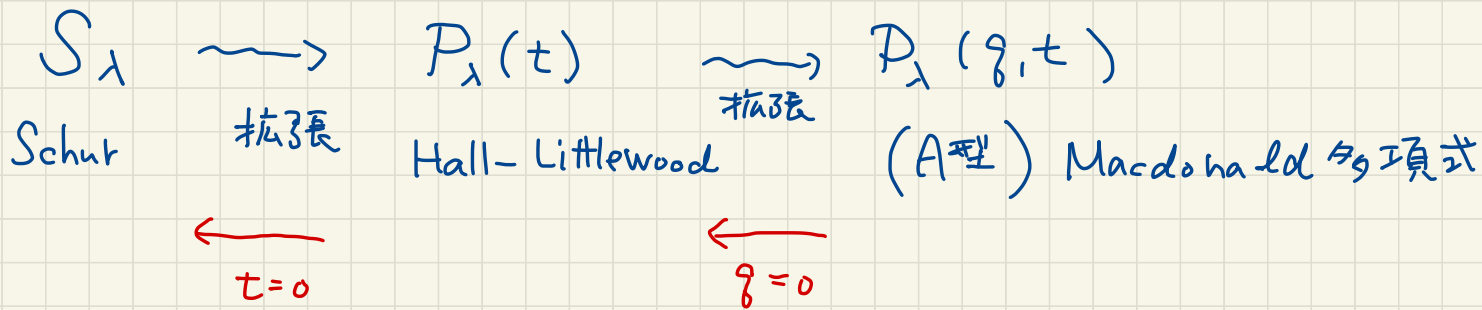 S_λ ⟶ P_λ(t) ⟶ P_λ(q,t)
拡張 拡張
Schur Hall-Littlewood (A型) Macdonald 多項式
← ←
t=0 q=0